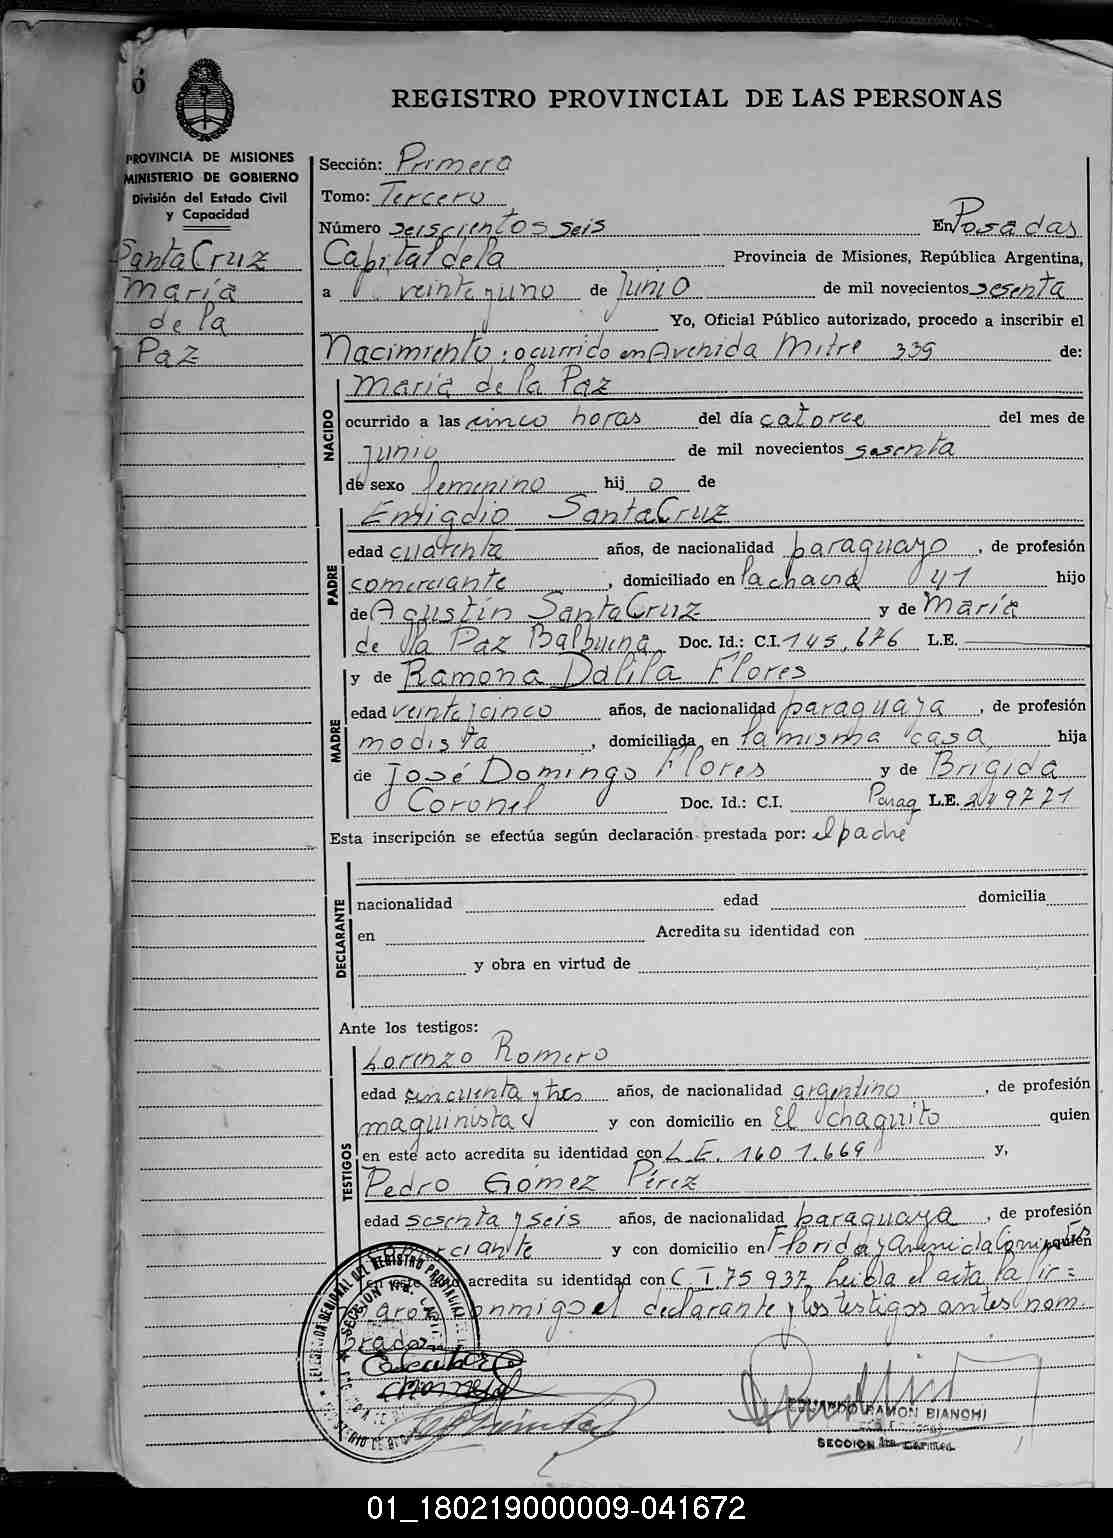 6
REGISTRO PROVINCIAL DE LAS PERSONAS
PROVINCIA DE MISIONES
MINISTERIO DE GOBIERNO
División del Estado Civil
y Capacidad
Santa Cruz
María
de la
Paz
Sección: Primera
Tomo: Tercero
Número seiscientos seis En Posadas
Capital de la Provincia de Misiones, República Argentina,
a veinte y uno de Junio de mil novecientos sesenta
Yo, Oficial Público autorizado, procedo a inscribir el
Nacimiento: ocurrido en Avenida Mitre 339 de:
NACIDO
María de la Paz
ocurrido a las cinco horas del día catorce del mes de
Junio de mil novecientos sesenta
de sexo femenino hij o de
PADRE
Emigdio SantaCruz
edad cuarenta años, de nacionalidad paraguayo, de profesión
comerciante, domiciliado en la chacra 41 hijo
de Agustín SantaCruz y de María
de la Paz Balbuena Doc. Id.: C.I. 145.676 L.E.
MADRE
y de Ramona Dalila Flores
edad veinte y cinco años, de nacionalidad paraguaya, de profesión
modista, domiciliada en la misma casa, hija
de José Domingo Flores y de Brígida
Coronel Doc. Id.: C.I. Parag L.E. 249771
Esta inscripción se efectúa según declaración prestada por: el padre
DECLARANTE
nacionalidad edad domicilia
en Acredita su identidad con
y obra en virtud de
Ante los testigos:
TESTIGOS
Lorenzo Romero
edad cincuenta y tres años, de nacionalidad argentino, de profesión
maquinista y con domicilio en El Chaquito quien
en este acto acredita su identidad con L.E. 160 1.669 y,
Pedro Gómez Pérez
edad sesenta y seis años, de nacionalidad paraguaya, de profesión
comerciante y con domicilio en Florida y Avenida quien
en este acto acredita su identidad con C.I. 75 937, Leída el acta la fir=
maron conmigo el declarante y los testigos antes nom.
brados
EDUARDO RAMON BIANCHI
SECCION 1ra.
01_180219000009-041672